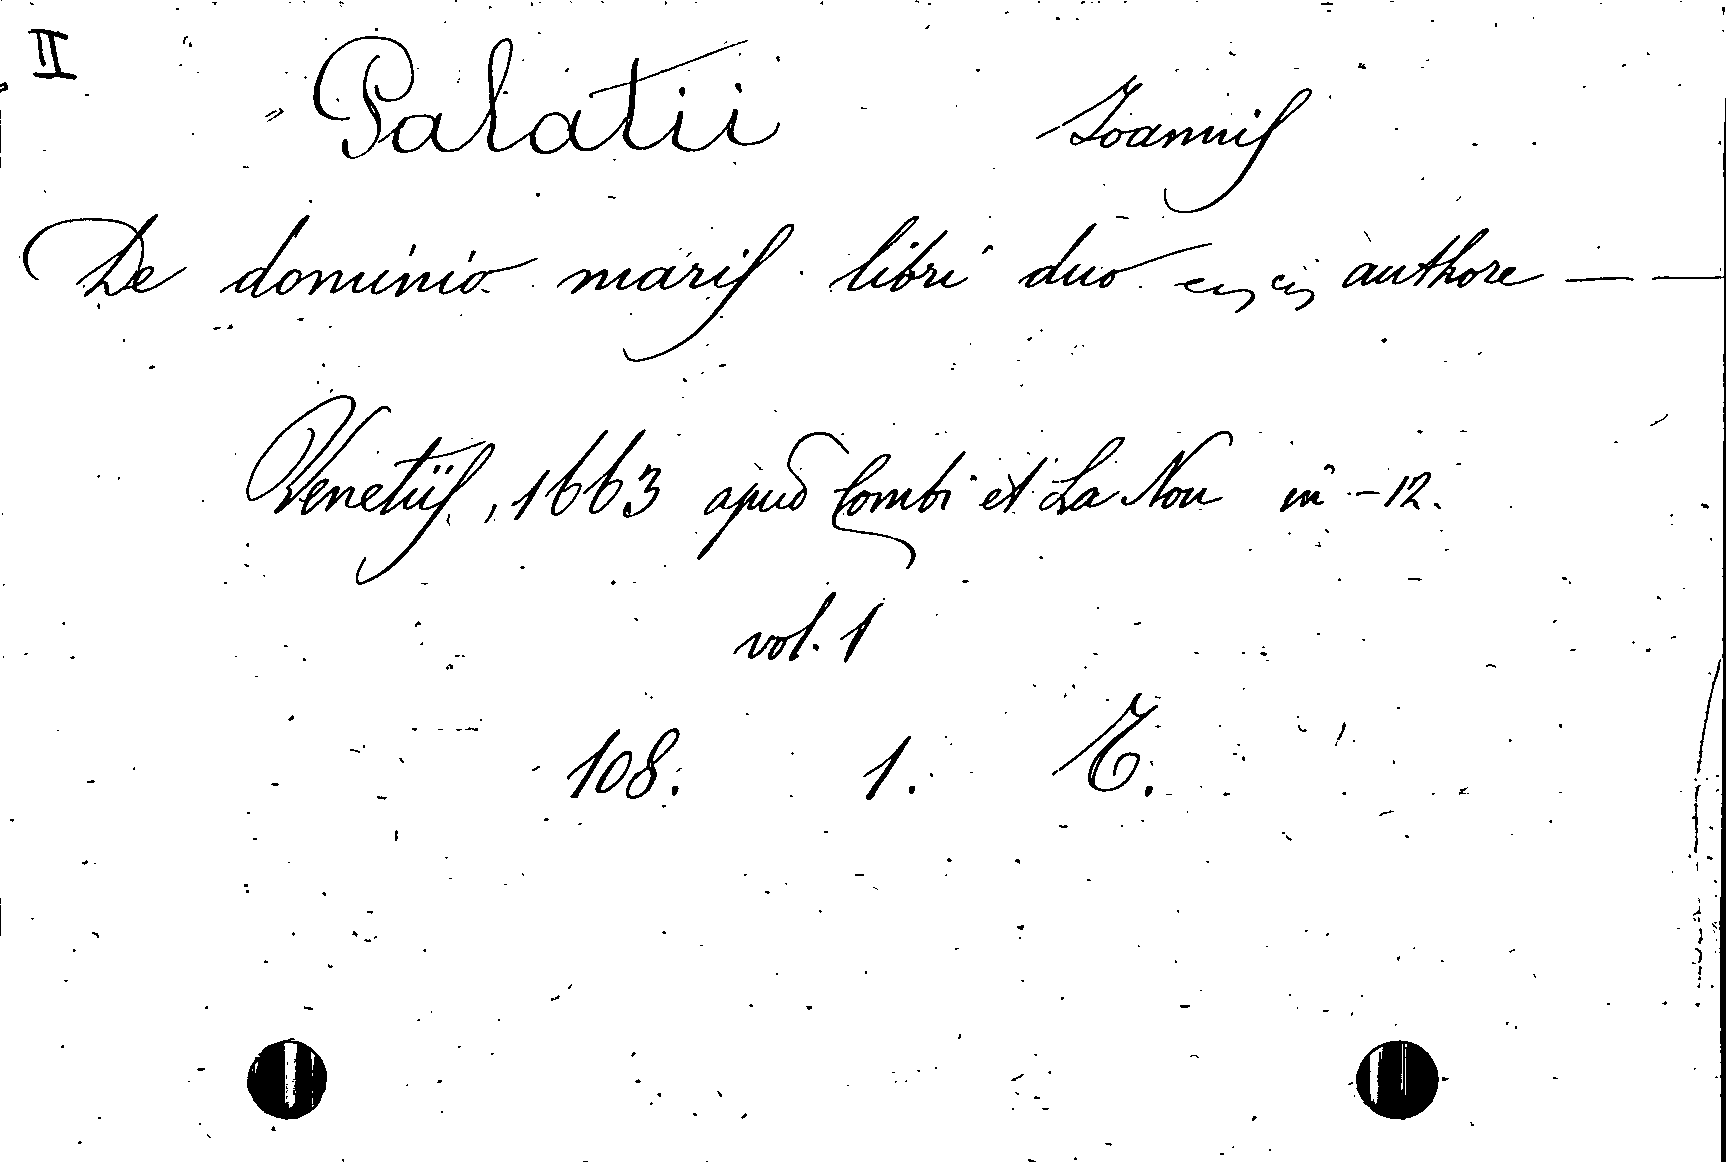 II
Palatii Ioannis
De dominio maris libri duo authore — —
Venetiis, 1663 apud Combi et La Nou in -12.
vol. 1
108. 1. T.